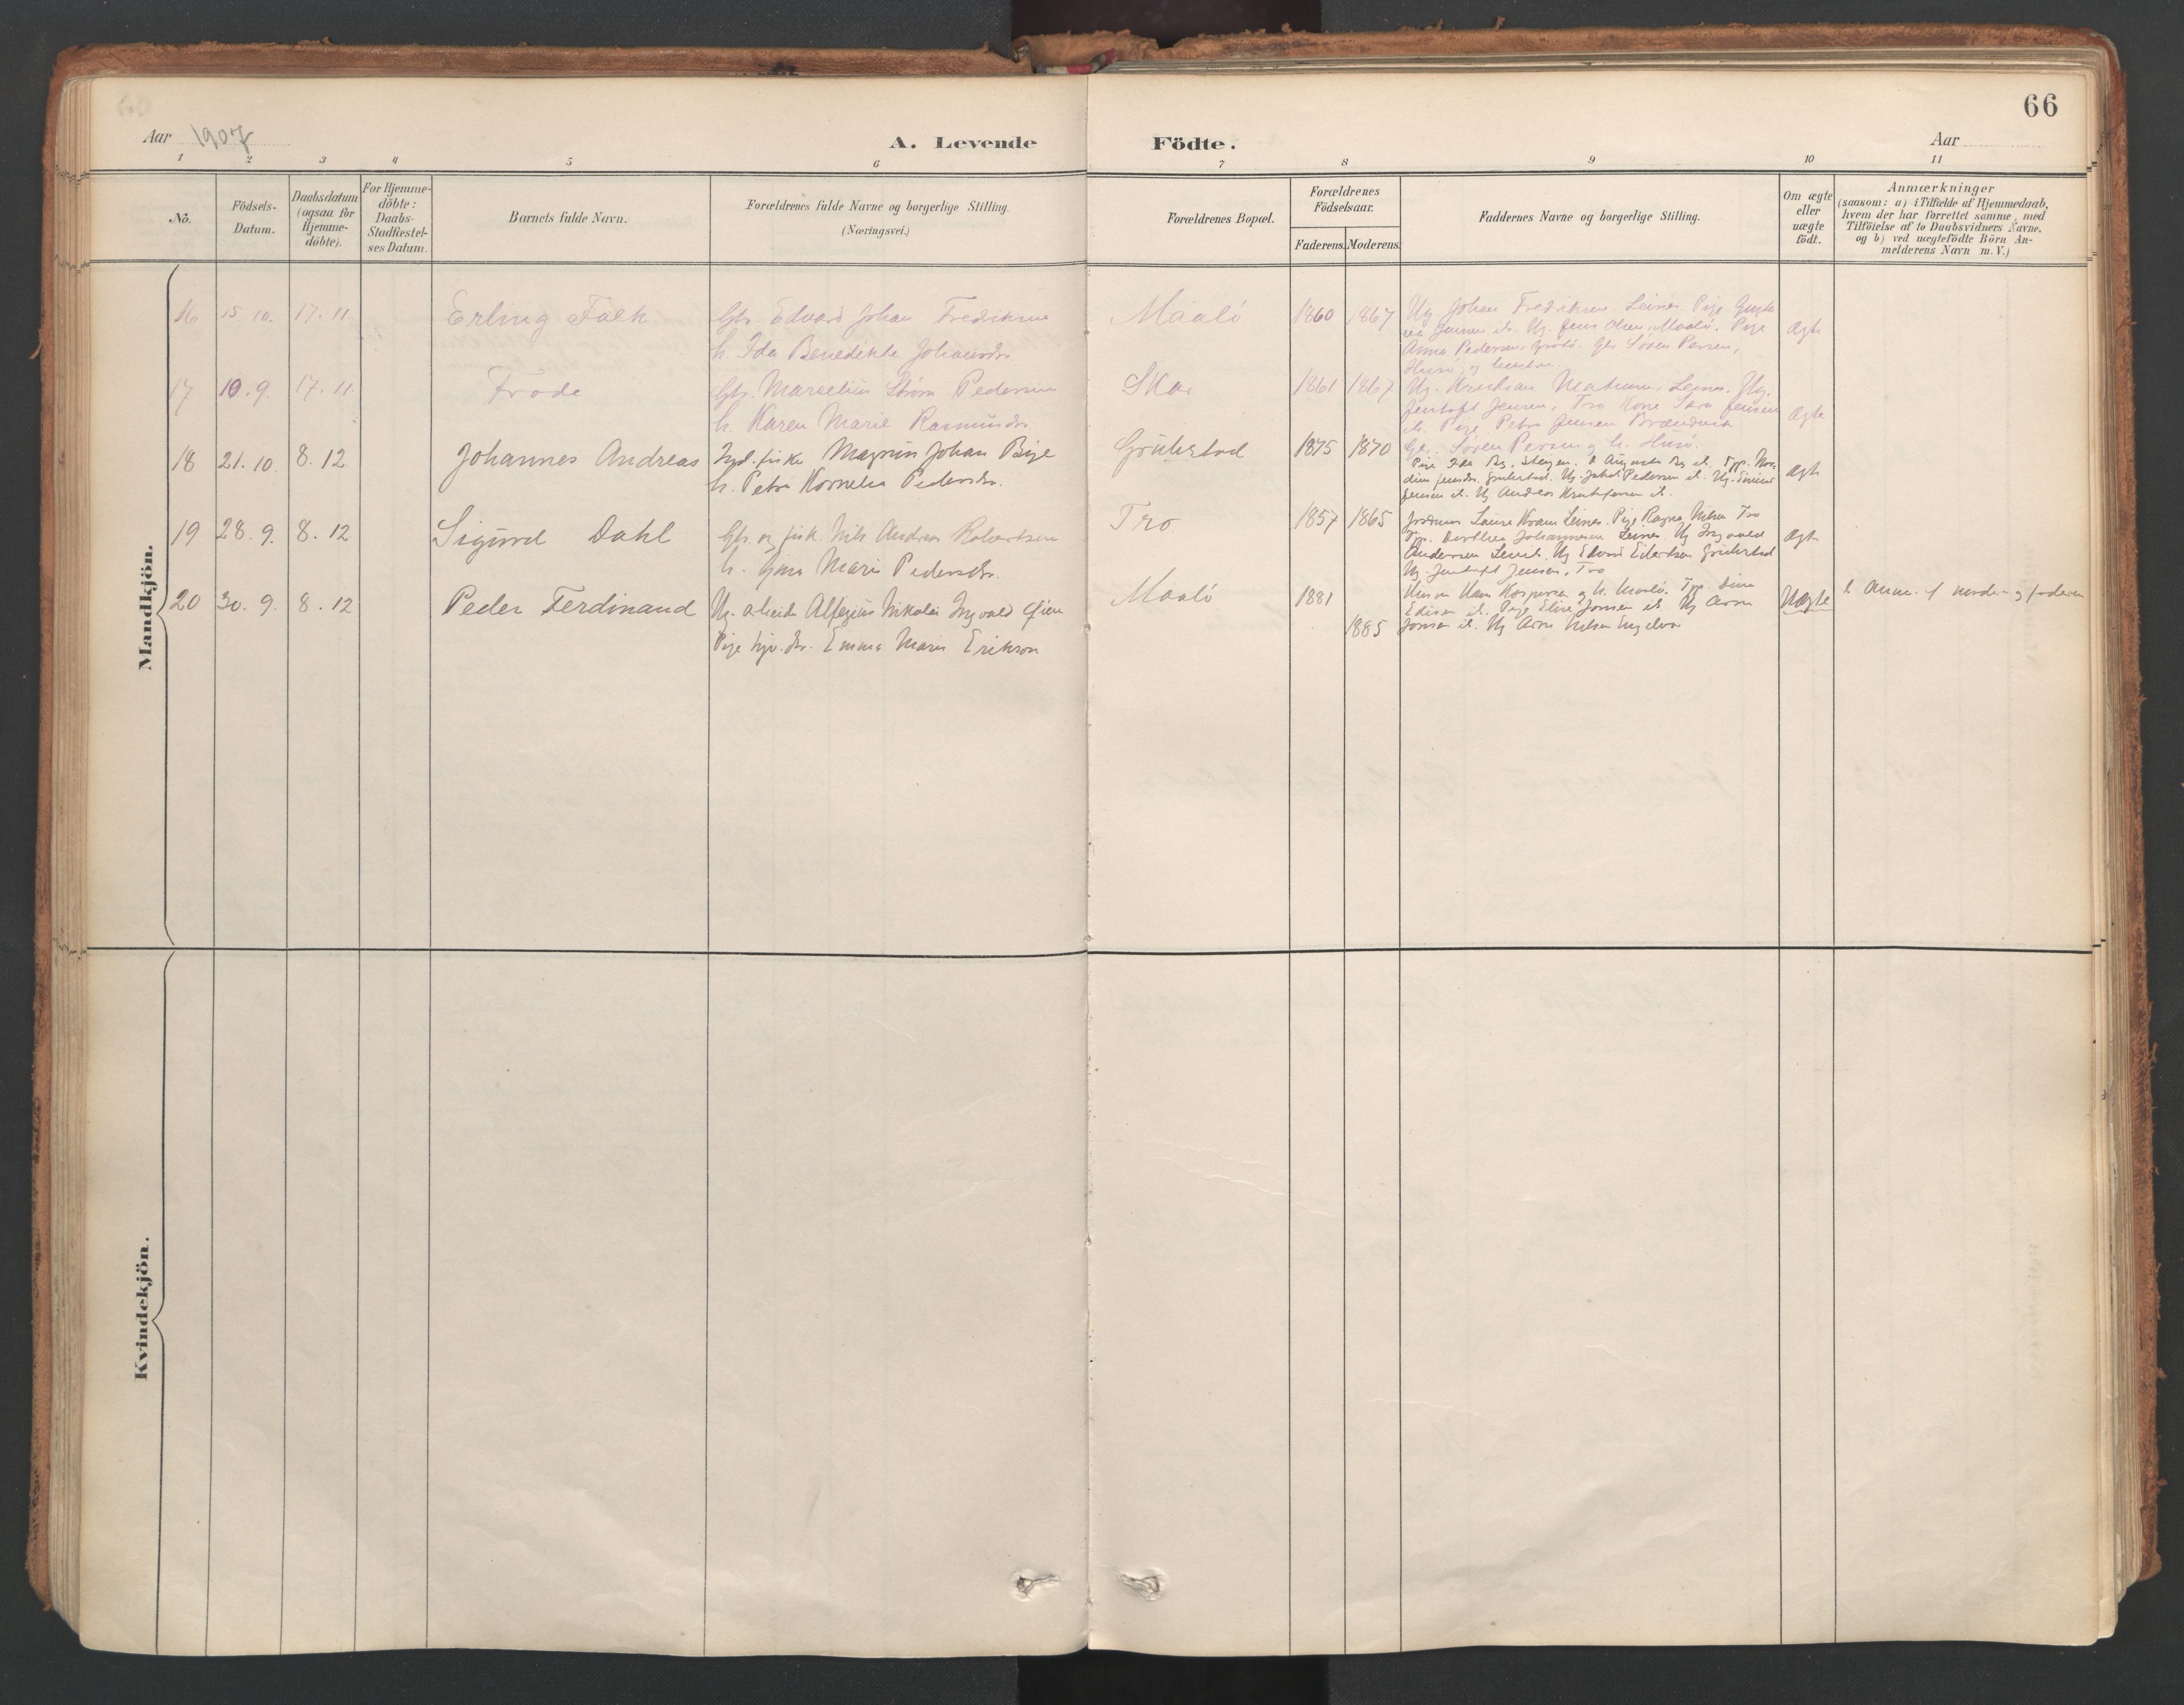 66
Aar 1907
A. Levende Födte.
Aar
1 2 3 4 5 6 7 8 9 10 11
No.
Födsels-
Datum.
Daabsdatum
(ogsaa for
Hjemme-
döbte).
For Hjemme-
döbte:
Daabs-
Stadfæstel-
ses Datum.
Barnets fulde Navn.
Forældrenes fulde Navne og borgerlige Stilling.
(Næringsvei.)
Forældrenes Bopæl.
Forældrenes
Födselsaar.
Faderens. Moderens.
Faddernes Navne og borgerlige Stilling.
Om ægte
eller
uægte
födt.
Anmærkninger
(saasom: a) i Tilfælde af Hjemmedaab,
hvem der har forrettet samme, med
Tilföielse af to Daabsvidners Navne,
og b) ved uægtefödte Börn An-
melderens Navn m. V.)
Mandkjön.
16 15 10. 17. 11. Erling Falk
Gbr. Edvard Johan Fredriksen
h. Ida Benedikte Johansdr.
Maalö 1860 1867
Ug Johan Fredriksen, Leines. Pige
Jensen it. Ug. Jens Olsen, Maalö. Pige
Anna Pedersen, Grötö. Gbr Sören Persen,
Husö, og hustru
Ægte
17 10. 9. 17. 11. Frode
Gbr. Marcelius Ström Pedersen
h. Karen Marie Rasmusdr.
Ska 1861 1867
Ug. Kristian Leines. Ug.
Jentoft Jensen, Tro Kone Sara Jensen
it. Pige Petra Jensen
Gbr. Sören Persen og h. Husö.
Ægte
18 21. 10. 8. 12 Johannes Andreas
Ind. fisker Magnus Johan Bye
h. Petra Kornelia Pedersdr.
1875 1870
Pige Ida Steigen. Augusta it.
Ug. Jakob Pedersen it. Ug.
Jensen it. Ug Andreas Kristofersen it.
Ægte
19 28. 9. 8. 12 Sigurd Dahl
Gbr og fisk. Nils Andreas Robertsen
h. Gina Marie Pedersdr.
Tro 1857 1865
Laura Kvam Leines. Pige Ragna Nilsen Tro
Dorthea Johannesen Leines. Ug Ingvald
Andersen Leines. Ug Edvard Eilertsen
Ug. Jentoft Jensen, Tro
Ægte
20 30. 9. 8. 12 Peder Ferdinand
Ug. arbeider Nikolai Ingvald
Pige hjv. dr. Emma Marie Erikson
Maalö 1881
1885
Hans Kaspersen og h. Maalö.
it. Pige Eline Jonsen it. Ug Arne
Jonsen it. Ug Arne Nilsen Engelvær
Uægte
1 Anm. af moder og faderen
Kvindekjön.